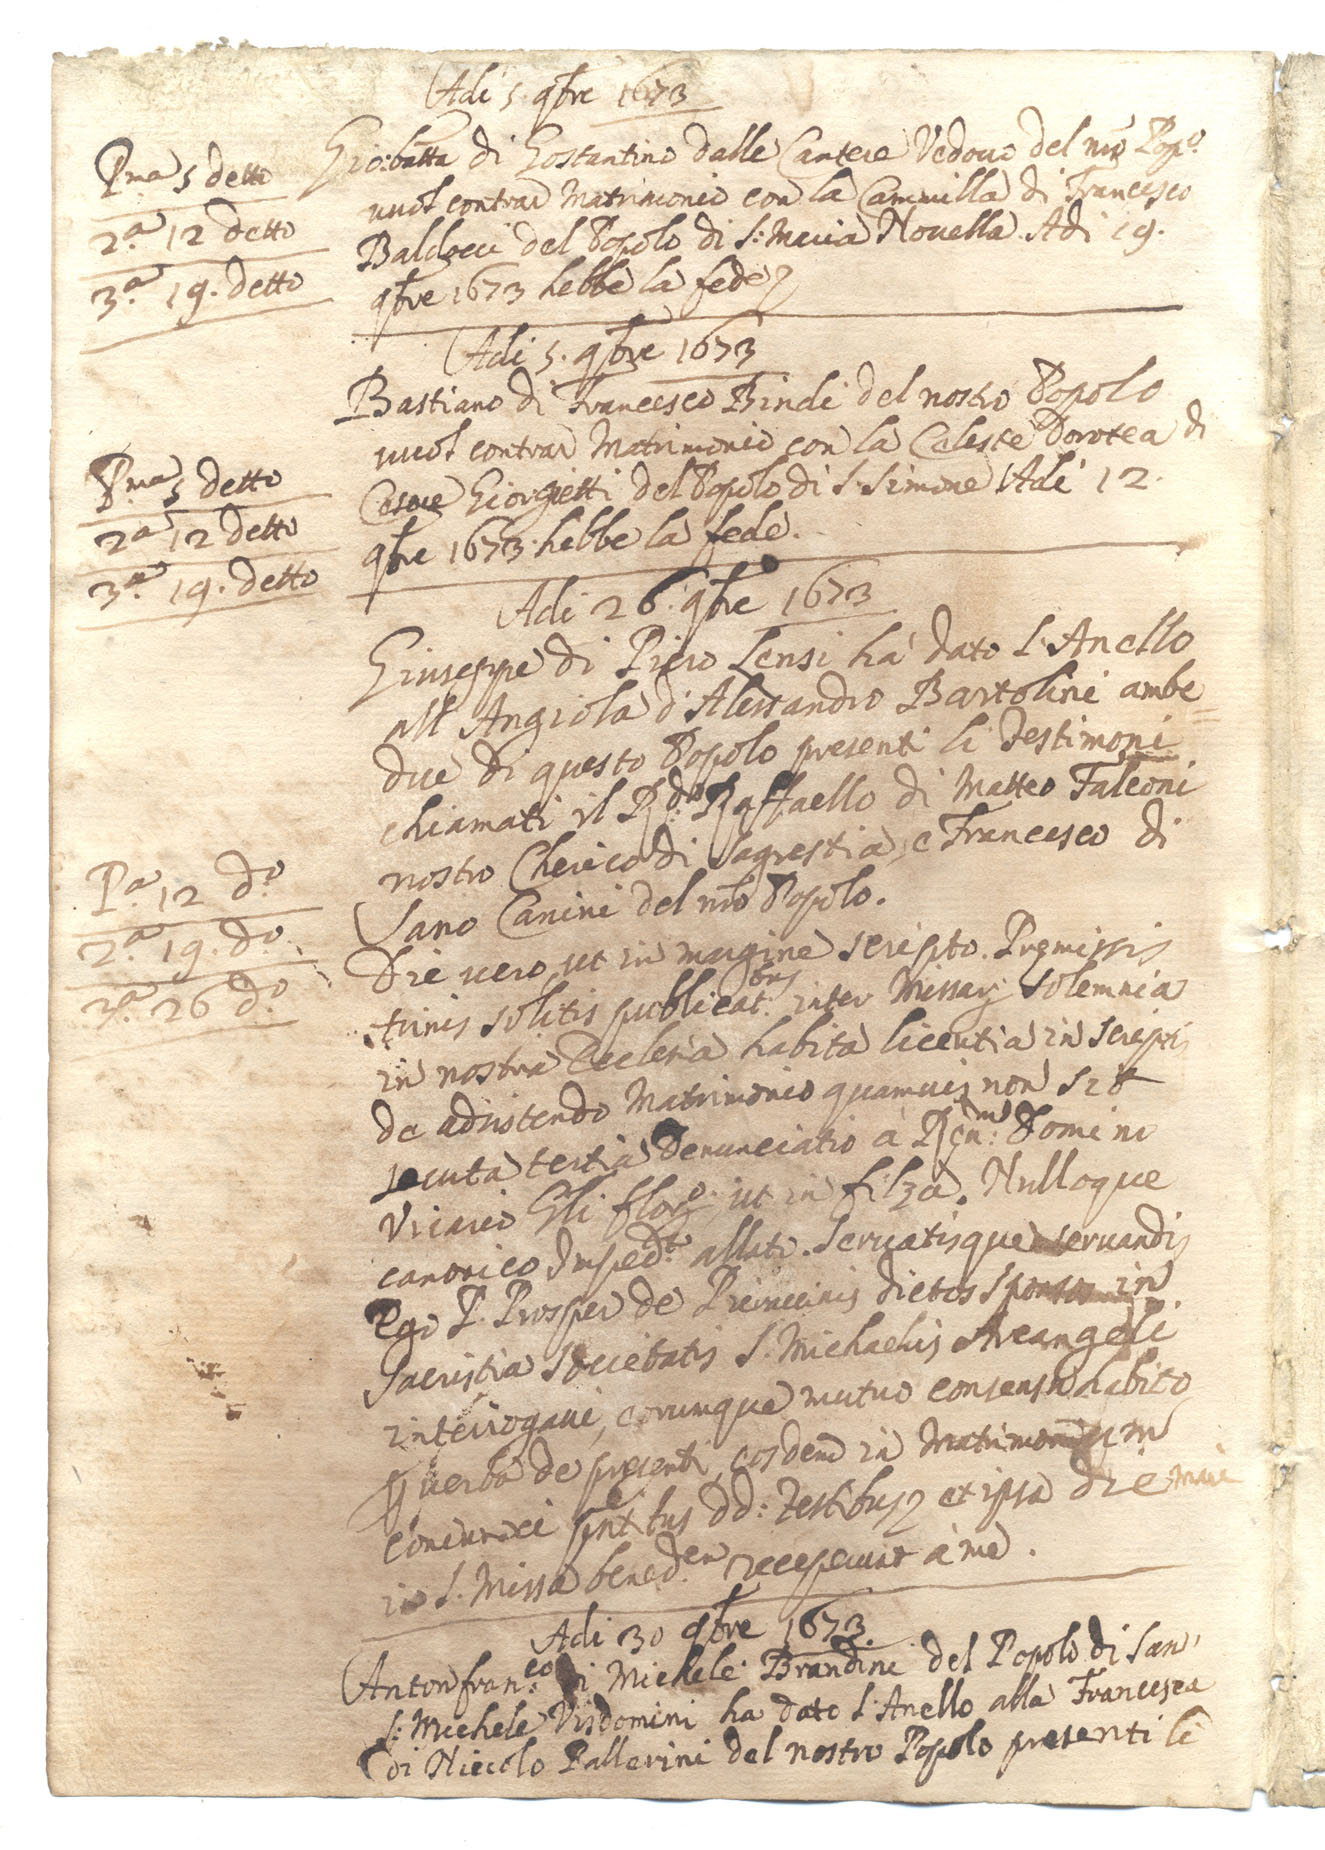 Adi 5. 9bre 1673
Pma 5 detto
2.a 12 detto
3.a 19. detto
Gio:batta di Gostantino dalle Cantere Vedovo del nro Popo.
vuol contrar Matrimonio con la Cammilla di Francesco
Baldocci del Popolo di S: Maria Novella. Adi 19.
9bre 1673 hebbe la fede
Adi 5. 9bre 1673
Pma 5 detto
2a 12 detto
3.a 19. detto
Bastiano di Francesco Bindi del nostro Popolo
vuol contrar Matrimonio con la Celeste Dorotea di
Cesare Giorgietti del Popolo di S. Simone Adi 12.
9bre 1673 hebbe la fede.
Adi 26. 9bre 1673
P.a 12 do.
2.a 19. do.
3.a 26 do.
Giuseppe di Piero Lensi ha dato l'Anello
all Angiola d'Alessandro Bartolini ambe
due di questo Popolo presenti li Testimoni
chiamati il Rdo: Raffaello di Matteo Falconi
nostro Cherico di Sagrestia, e Francesco di
Sano Canini del nro Popolo.
Die vero, ut in margine scripto. Premissis
trinis solitis publicat.bus inter Missarj solemnia
in nostra Ecclesia habita licentia in scriptis
de adsistendo Matrimonio quamvis non sit
secuta tertia Denunciatio à Domini
Vicario Gli flore, ut in filza. Nulloque
canonico Imped.to allato. Servatisque servandis
Ego P. Prosper de dictos sponsos in
Sacristia Societatis S. Michaelis Arcangeli
interrogavi, eorumque mutuo consensu habito
p verba de presenti, eosdem in Matrimonium
coniunxi pntibus dd: Testibus et ipsa die mane
in S. Missa bened.en receperunt à me.
Adi 30 9bre 1673.
Antonfran.co di Michele Brandini del Popolo di San
S: Michele Visdomini ha dato l'Anello alla Francesca
di Niccolo Ballerini del nostro Popolo presenti li